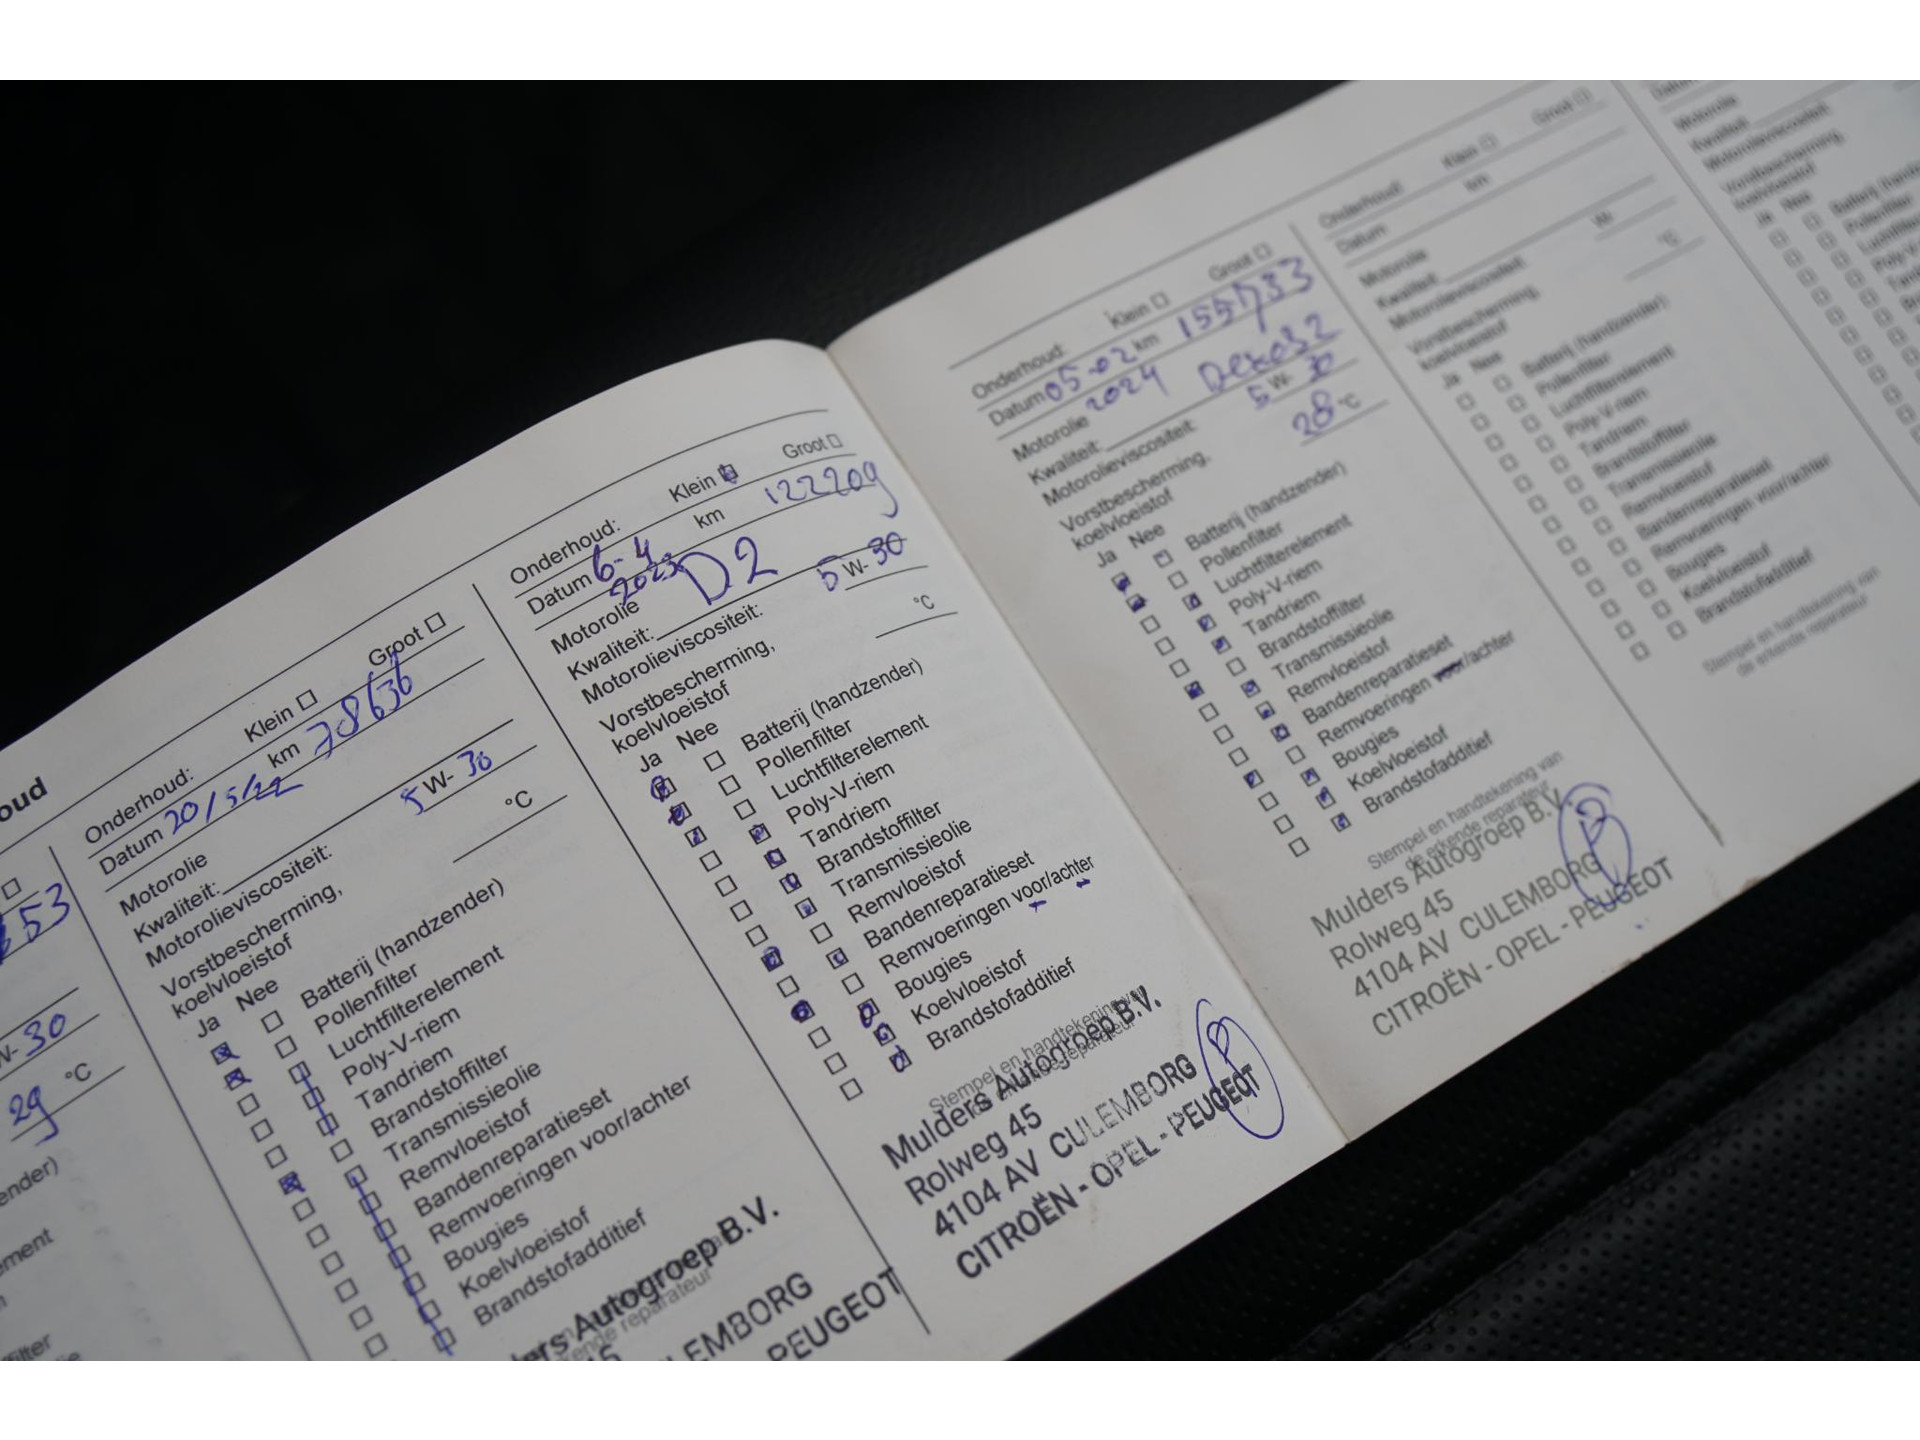 oud
53
W-30
29 °C
ender)
ement
Onderhoud: Klein Groot
Datum 20/5/22 km 78636
Motorolie
Kwaliteit:
Motorolieviscositeit: 5 W- 30
Vorstbescherming,
koelvloeistof °C
Ja Nee
Batterij (handzender)
Pollenfilter
Luchtfilterelement
Poly-V-riem
Tandriem
Brandstoffilter
Transmissieolie
Remvloeistof
Bandenreparatieset
Remvoeringen voor/achter
Bougies
Koelvloeistof
Brandstofadditief
ers Autogroep B.V.
ULEMBORG
PEUGEOT
Onderhoud: Klein Groot
Datum 6-4 2023 km 122209
Motorolie D2
Kwaliteit:
Motorolieviscositeit: 5 W- 30
Vorstbescherming,
koelvloeistof °C
Ja Nee
Batterij (handzender)
Pollenfilter
Luchtfilterelement
Poly-V-riem
Tandriem
Brandstoffilter
Transmissieolie
Remvloeistof
Bandenreparatieset
Remvoeringen voor/achter
Bougies
Koelvloeistof
Brandstofadditief
Stempel en handtekening van
de erkende reparateur
Mulders Autogroep B.V.
Rolweg 45
4104 AV CULEMBORG
CITROËN - OPEL - PEUGEOT
Onderhoud: Klein Groot
Datum 05-02 2024 km 155733
Motorolie
Kwaliteit:
Motorolieviscositeit: 5 W- 30
Vorstbescherming,
koelvloeistof 28 °C
Ja Nee
Batterij (handzender)
Pollenfilter
Luchtfilterelement
Poly-V-riem
Tandriem
Brandstoffilter
Transmissieolie
Remvloeistof
Bandenreparatieset
Remvoeringen voor/achter
Bougies
Koelvloeistof
Brandstofadditief
Stempel en handtekening van
de erkende reparateur
Mulders Autogroep B.V.
Rolweg 45
4104 AV CULEMBORG
CITROËN - OPEL - PEUGEOT
Onderhoud: Klein Groot
Datum km
Motorolie
Kwaliteit:
Motorolieviscositeit: W-
Vorstbescherming,
koelvloeistof °C
Ja Nee
Batterij (handzender)
Pollenfilter
Luchtfilterelement
Poly-V-riem
Tandriem
Brandstoffilter
Transmissieolie
Remvloeistof
Bandenreparatieset
Remvoeringen voor/achter
Bougies
Koelvloeistof
Brandstofadditief
Stempel en handtekening van
de erkende reparateur
Datum
Motorolie
Kwaliteit:
Motorolieviscositeit:
Vorstbescherming,
koelvloeistof
Ja Nee
Pollenfilter